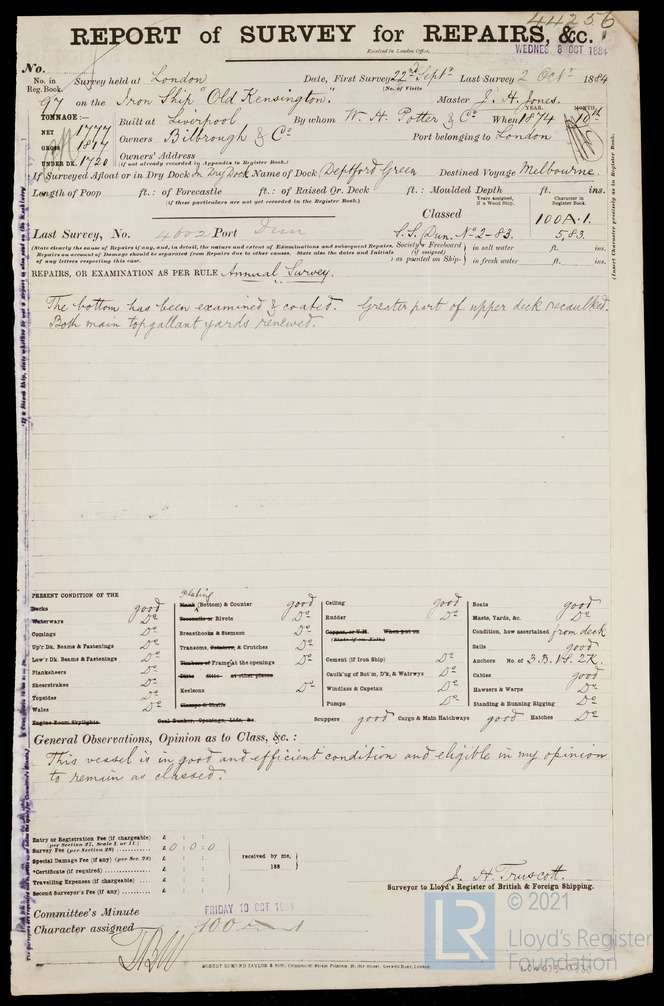 44256
REPORT of SURVEY for REPAIRS, &c.
Received in London Office, WEDNES. 8 OCT 1884
No.
No. in Reg. Book. Survey held at London Date, First Survey 22nd Septr Last Survey 2 Octr 1884
(No. of Visits
97 on the Iron Ship "Old Kensington." Master J. H. Jones.
TONNAGE:— Built at Liverpool By whom W. H. Potter & Co When 1874 10th
YEAR. MONTH.
NET 1777
GROSS 1817 Owners Bilbrough & Co Port belonging to London
UNDER DK. 1720 Owners' Address
(If not already recorded in Appendix to Register Book.)
If Surveyed Afloat or in Dry Dock In Dry Dock Name of Dock Deptford Green Destined Voyage Melbourne.
Length of Poop ft.: of Forecastle ft.: of Raised Qr. Deck ft.: Moulded Depth ft. ins.
(If these particulars are not yet recorded in the Register Book.)
Years assigned, if a Wood Ship. Character in Register Book.
Classed 100A.1.
Last Survey, No. 4602 Port Dun S.S. Dun. No 2-83. 5,83.
(State clearly the cause of Repairs if any, and, in detail, the nature and extent of Examinations and subsequent Repairs.
Repairs on account of Damage should be separated from Repairs due to other causes. State also the dates and Initials
of any letters respecting this case.
Society's Freeboard (if assigned) as painted on Ship- in salt water ft. ins.
in fresh water ft. ins.
(Insert Character precisely as in Register Book.
REPAIRS, OR EXAMINATION AS PER RULE Annual Survey.
The bottom has been examined & coated. Greater part of upper deck recaulked.
Both main topgallant yards renewed.
PRESENT CONDITION OF THE
Decks good
Waterways Do
Comings Do
Up'r Dk. Beams & Fastenings Do
Low'r Dk. Beams & Fastenings Do
Planksheers Do
Sheerstrakes Do
Topsides Do
Wales Do
Engine Room Skylights
Coal Bunker, Openings, Lids, &c.
plating
Plank (Bottom) & Counter good
Treenails or Rivets Do
Breasthooks & Stemson Do
Transoms, Pointers, & Crutches Do
Timbers of Frame at the openings Do
Ditto ditto at other places
Keelsons Do
Clamps & Shelfs
Ceiling good
Rudder Do
Copper, or Y.M. When put on
(State if on Felt.)
Cement (if Iron Ship) Do
Caulk'ng of Bot'm, D'k, & Watrwys Do
Windlass & Capstan Do
Pumps Do
Scuppers good Cargo & Main Hatchways good Hatches Do
Boats good
Masts, Yards, &c. Do
Condition, how ascertained from deck
Sails good
Anchors No. of 3.B. 1S. 2K.
Cables good
Hawsers & Warps Do
Standing & Running Rigging Do
General Observations, Opinion as to Class, &c.:
This vessel is in good and efficient condition and eligible in my opinion
to remain as classed.
Entry or Registration Fee (if chargeable) £ : :
(per Section 27, Scale I. or II.)
Survey Fee (per Section 28) £ 0 : 0 : 0
Special Damage Fee (if any) (per Sec. 28) £ : :
*Certificate (if required) £ : :
Travelling Expenses (if chargeable) £ : :
Second Surveyor's Fee (if any) £ : :
received by me,
188
J. H. Truscott.
Surveyor to Lloyd's Register of British & Foreign Shipping.
Committee's Minute FRIDAY 10 OCT 1884
Character assigned 100 A 1
ROBERT EDMUND TAYLOR & SON,
© 2021
LR
Lloyd's Register
Foundation